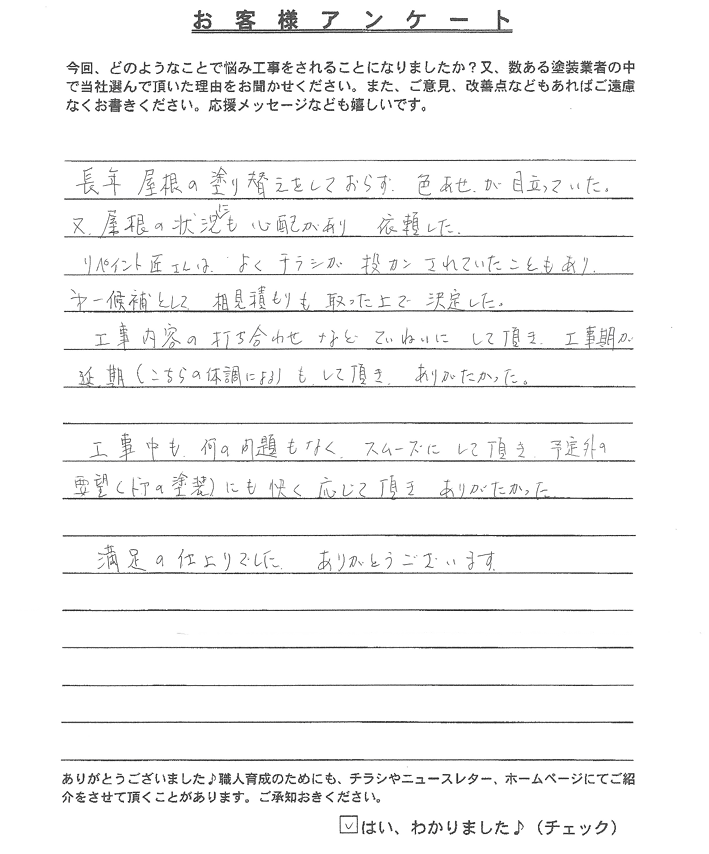 お客様アンケート
今回、どのようなことで悩み工事をされることになりましたか？又、数ある塗装業者の中
で当社選んで頂いた理由をお聞かせください。また、ご意見、改善点などもあればご遠慮
なくお書きください。応援メッセージなども嬉しいです。
長年 屋根の塗り替えをしておらず、色あせが目立っていた。
又、屋根の状況にも心配があり 依頼した。
リペイント匠さんは、よくチラシが投カンされていたこともあり、
第一候補として 相見積もりも取った上で決定した。
工事内容の打ち合わせなどていねいにして頂き、工事期が
延期（こちらの体調による）もして頂き、ありがたかった。
工事中も、何の問題もなく、スムーズにして頂き、予定外の
要望（ドアの塗装）にも快く応じて頂き ありがたかった
満足の仕上りでした。 ありがとうございます。
ありがとうございました♪職人育成のためにも、チラシやニュースレター、ホームページにてご紹
介をさせて頂くことがあります。ご承知おきください。
☑はい、わかりました♪（チェック）